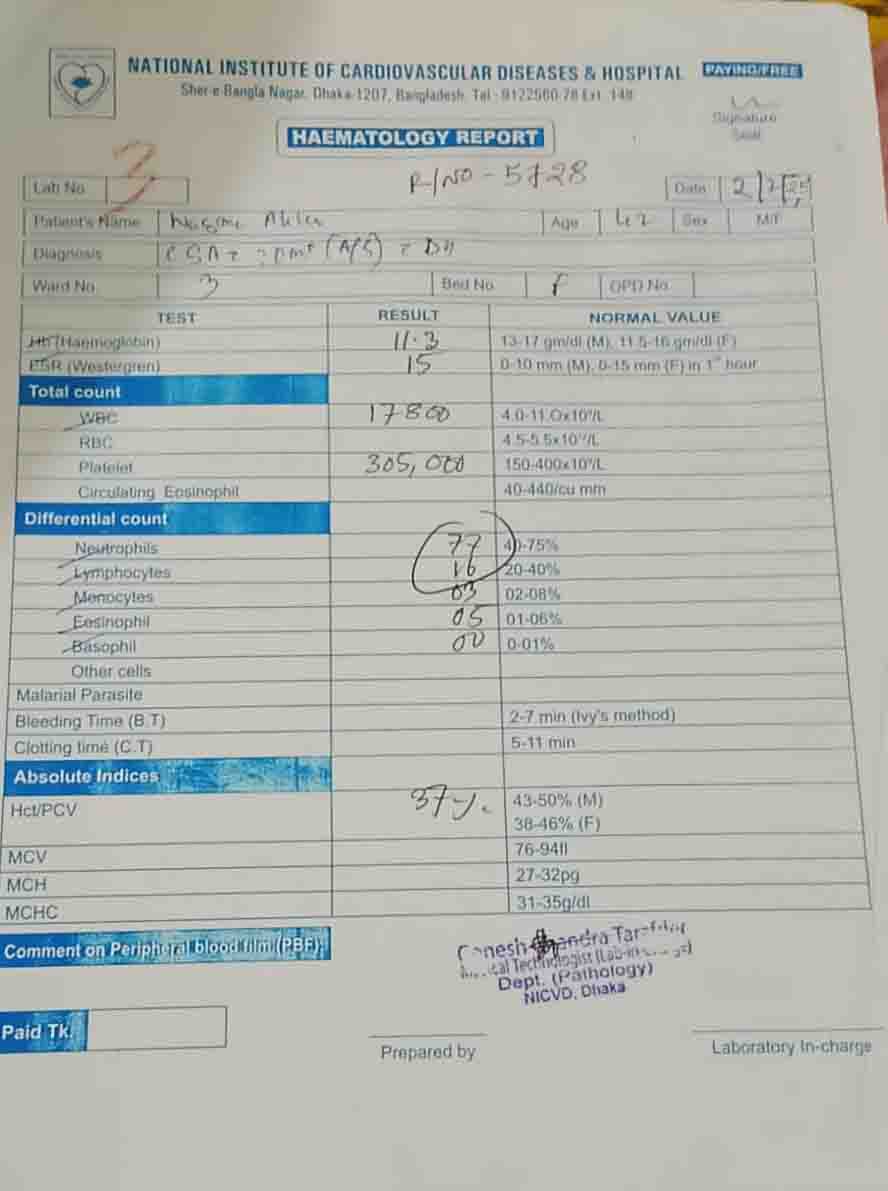 NATIONAL INSTITUTE OF CARDIOVASCULAR DISEASES & HOSPITAL PAYING/FREE
Sher-e-Bangla Nagar, Dhaka-1207, Bangladesh. Tel : 9122560-78 Ext. 148
Signature
Seal
HAEMATOLOGY REPORT
R/NO - 5728
Lab No. 3 Date
Patient's Name Age Sex M/F
Diagnosis
Ward No. 3 Bed No. OPD No.
TEST RESULT NORMAL VALUE
Hb (Haemoglobin) 11.3 13-17 gm/dl (M), 11.5-16 gm/dl (F)
ESR (Westergren) 15 0-10 mm (M), 0-15 mm (F) in 1st hour
Total count
WBC 17800 4.0-11.0x10⁹/L
RBC 4.5-5.5x10¹²/L
Platelet 305,000 150-400x10⁹/L
Circulating Eosinophil 40-440/cu mm
Differential count
Neutrophils 77 40-75%
Lymphocytes 16 20-40%
Monocytes 03 02-08%
Eosinophil 05 01-06%
Basophil 00 0-01%
Other cells
Malarial Parasite
Bleeding Time (B.T) 2-7 min (Ivy's method)
Clotting time (C.T) 5-11 min
Absolute Indices
Hct/PCV 37%. 43-50% (M)
38-46% (F)
MCV 76-94fl
MCH 27-32pg
MCHC 31-35g/dl
Comment on Peripheral blood film (PBF):
Technologist
Dept. (Pathology)
NICVD, Dhaka
Paid Tk.
Prepared by
Laboratory In-charge